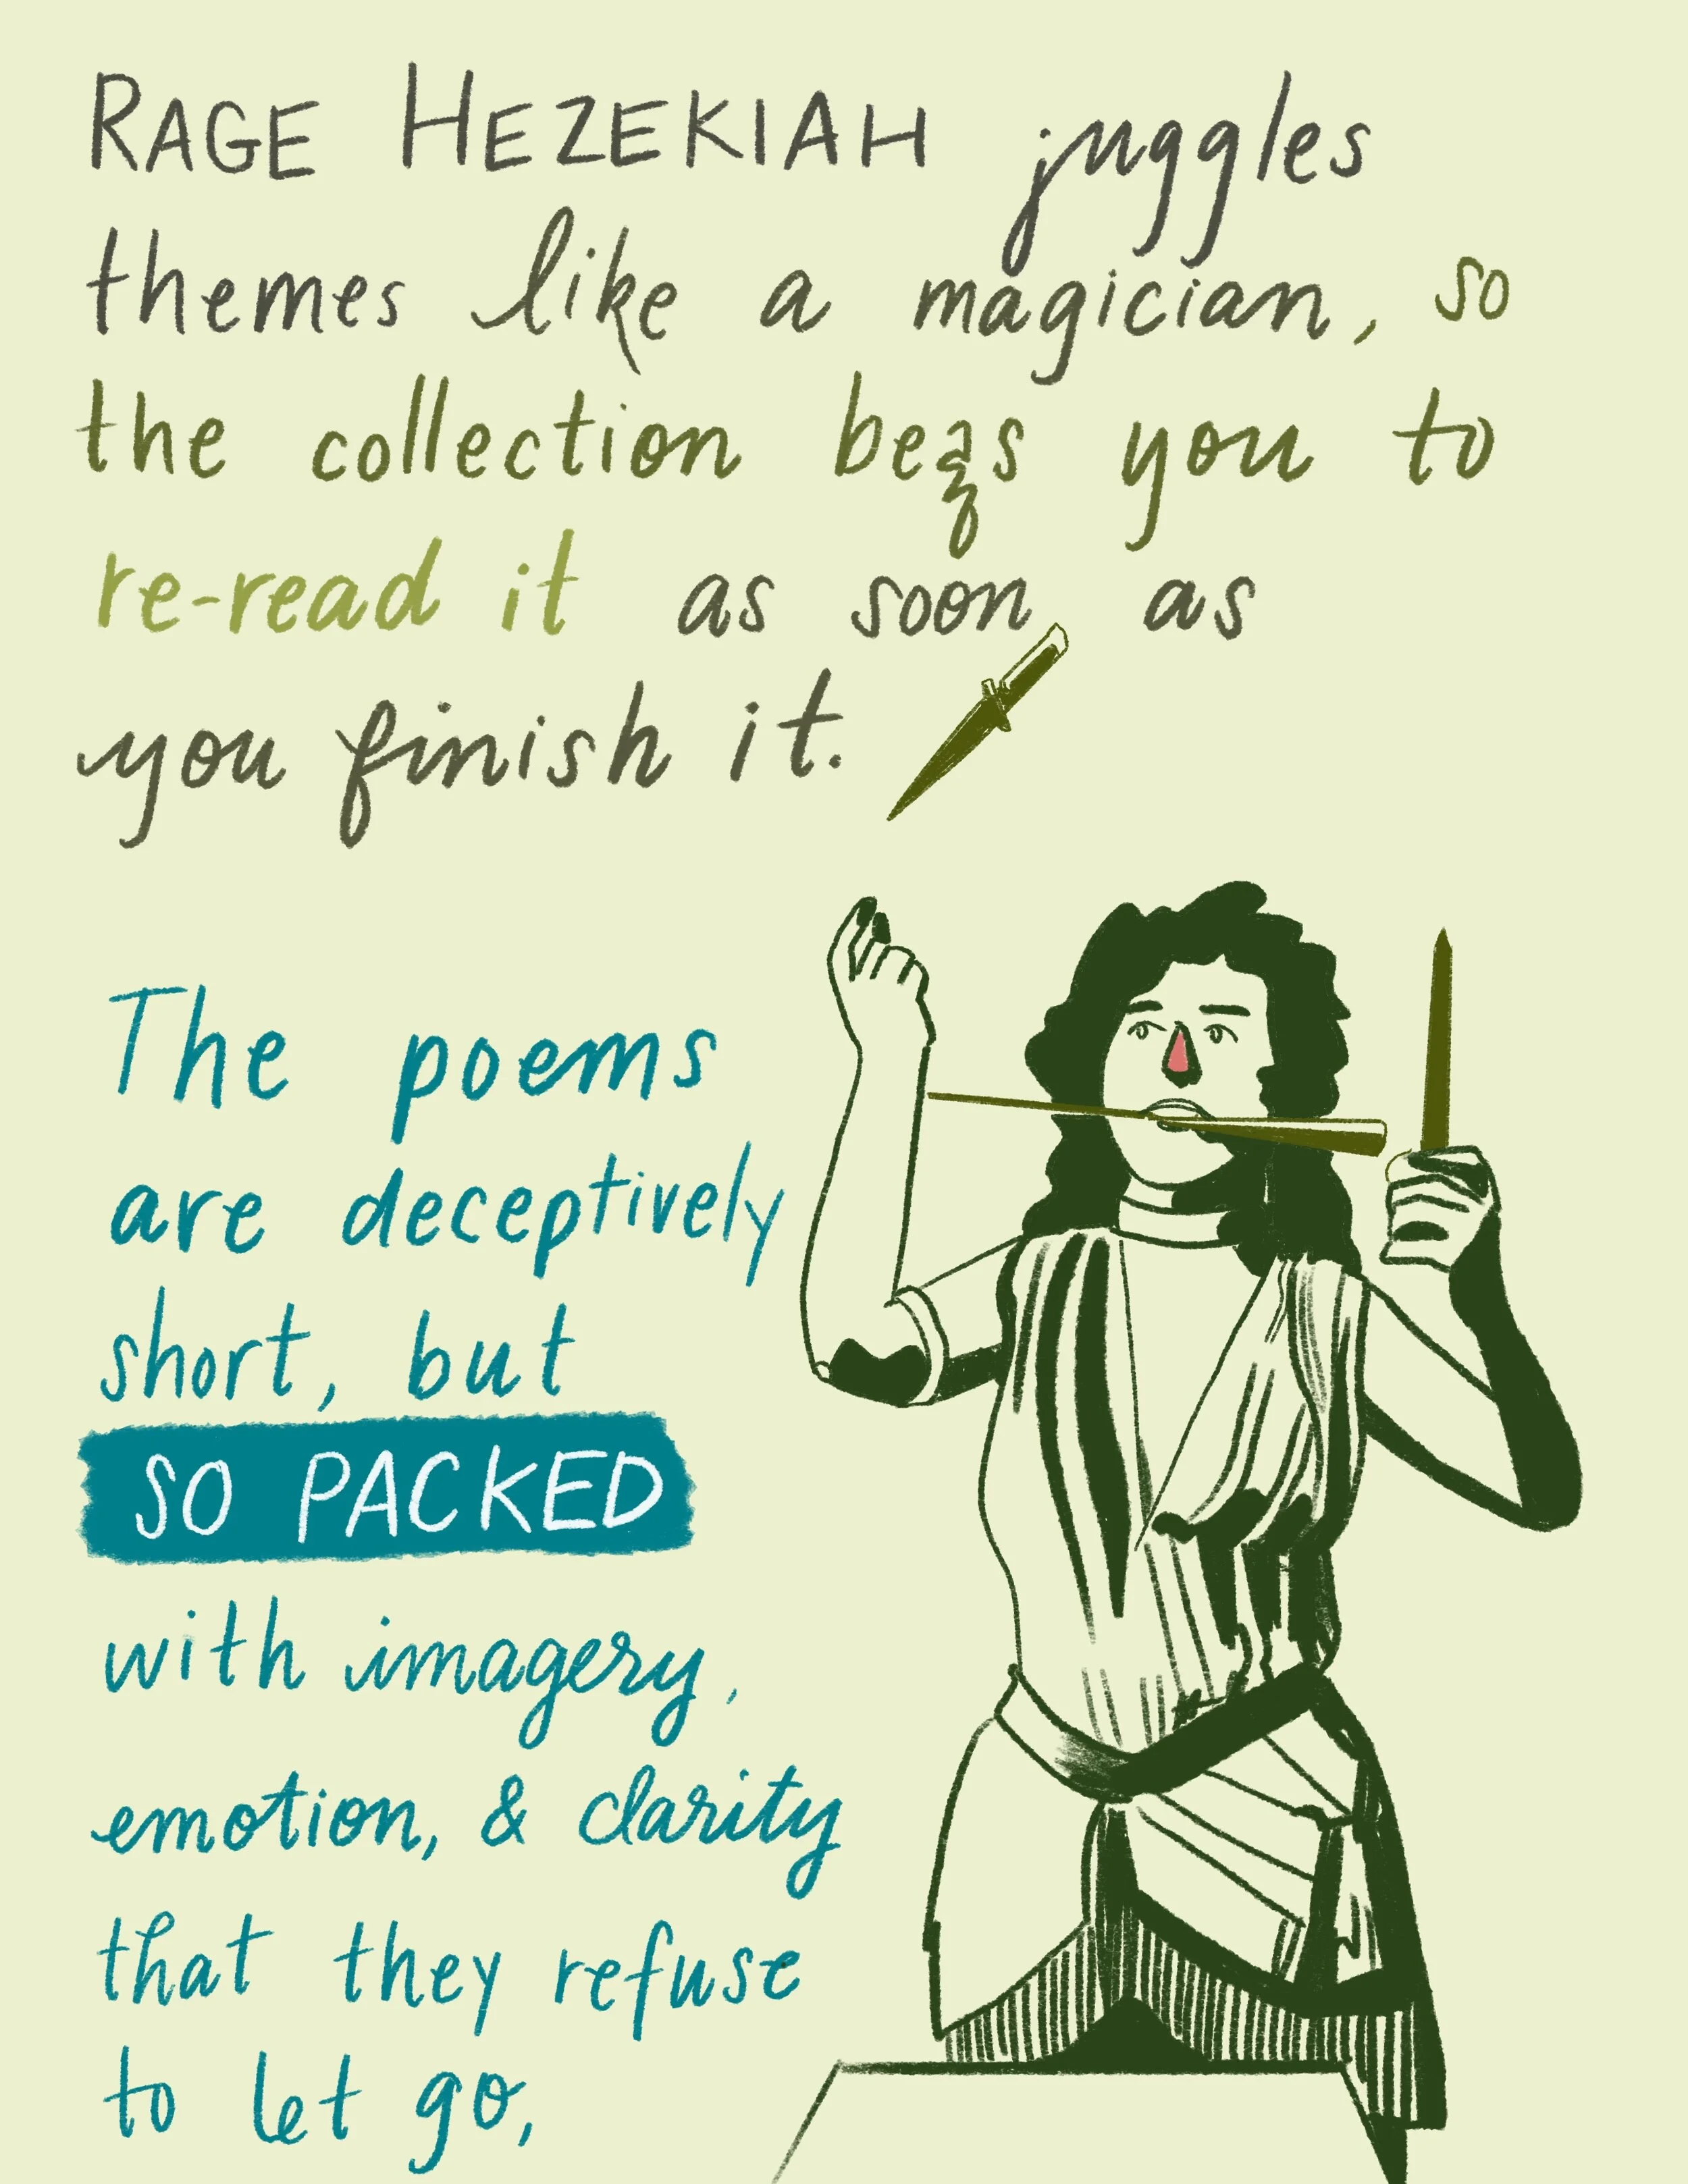 RAGE HEZEKIAH juggles
themes like a magician, so
the collection begs you to
re-read it as soon as
you finish it.
The poems
are deceptively
short, but
SO PACKED
with imagery,
emotion, & clarity
that they refuse
to let go,